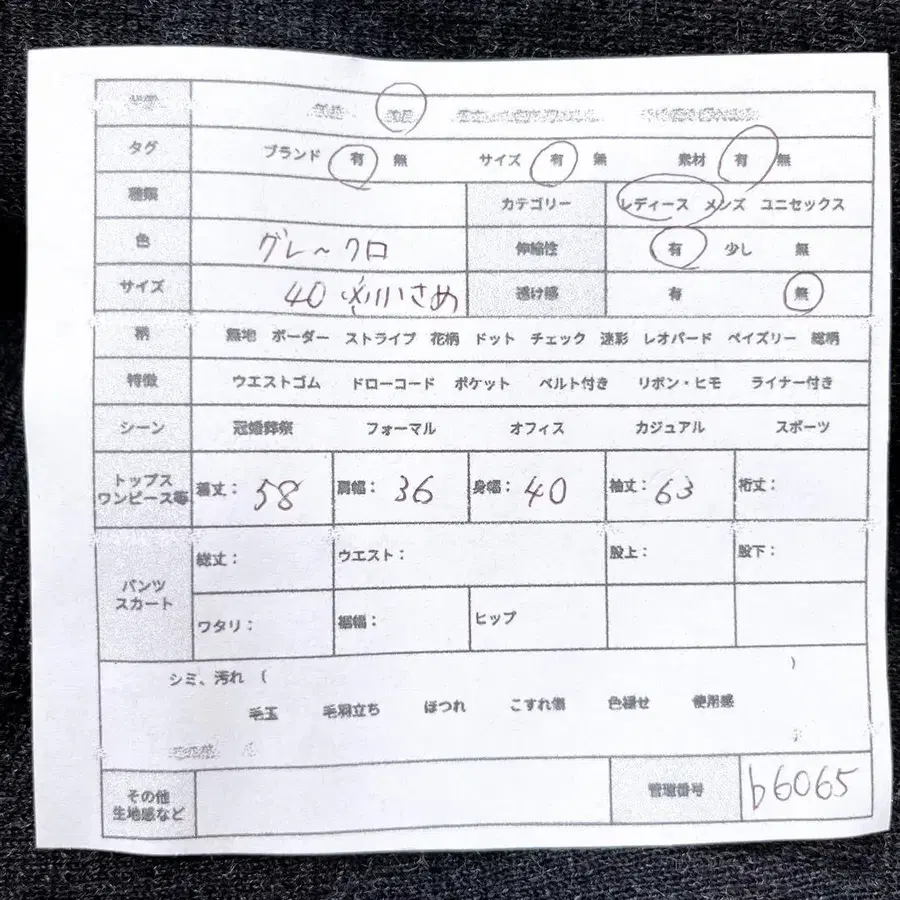 タグ ブランド 有 無 サイズ 有 無 素材 有 無
種類 カテゴリー レディース メンズ ユニセックス
色 グレ～クロ 伸縮性 有 少し 無
サイズ 40 小さめ 透け感 有 無
柄 無地 ボーダー ストライプ 花柄 ドット チェック 迷彩 レオパード ペイズリー 総柄
特徴 ウエストゴム ドローコード ポケット ベルト付き リボン・ヒモ ライナー付き
シーン 冠婚葬祭 フォーマル オフィス カジュアル スポーツ
トップス
ワンピース等 着丈： 58 肩幅： 36 身幅： 40 袖丈： 63 裄丈：
パンツ
スカート
総丈： ウエスト： 股上： 股下：
ワタリ： 裾幅： ヒップ
シミ、汚れ （ ）
毛玉 毛羽立ち ほつれ こすれ傷 色褪せ 使用感
その他
生地感など 管理番号 b6065